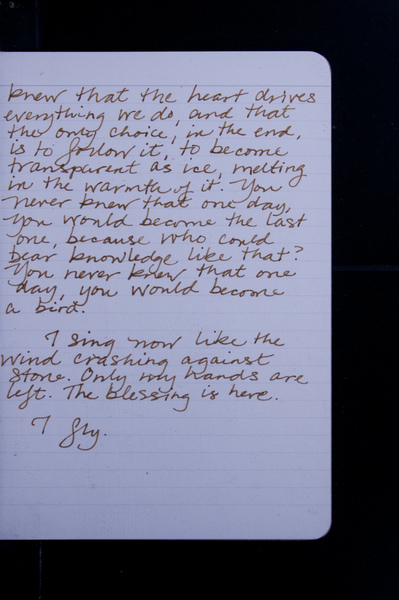 knew that the heart drives
everything we do, and that
the only choice, in the end,
is to follow it, to become
transparent as ice, melting
in the warmth of it. You
never knew that one day,
you would become the last
one, because who could
bear knowledge like that?
You never knew that one
day, you would become
a bird.
I sing now like the
wind crashing against
stone. Only my hands are
left. The blessing is here.
I fly.